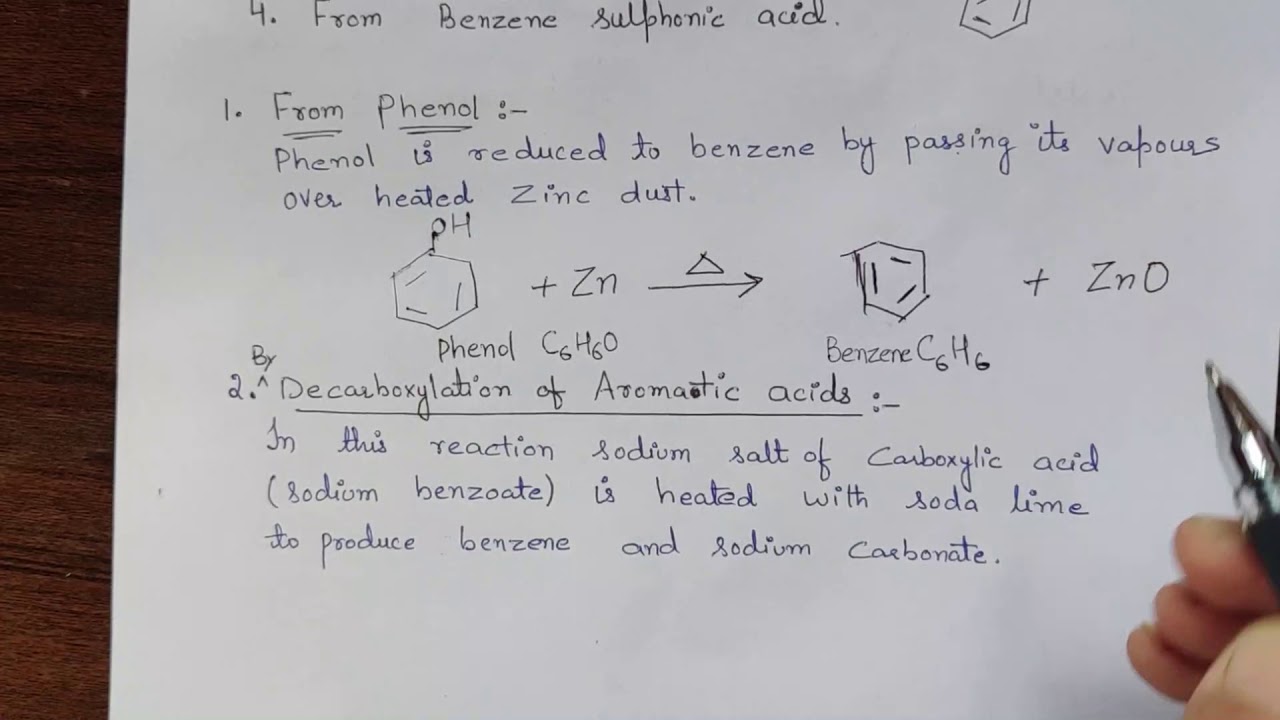 4. From Benzene sulphonic acid.
1. From Phenol :-
Phenol is reduced to benzene by passing its vapours
over heated Zinc dust.
OH
+ Zn △ → + ZnO
Phenol C₆H₆O Benzene C₆H₆
By
2. ^ Decarboxylation of Aromatic acids :-
In this reaction sodium salt of Carboxylic acid
(sodium benzoate) is heated with soda lime
to produce benzene and sodium Carbonate.